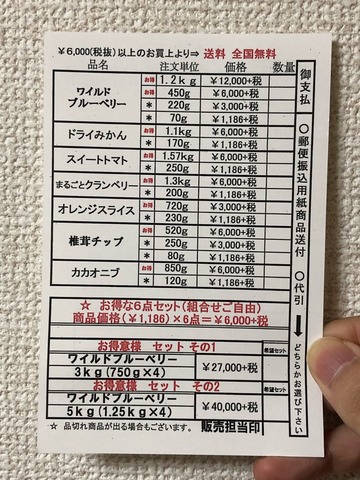 ￥6,000(税抜)以上のお買上より⇒ 送料 全国無料
品名 注文単位 価格 数量
ワイルドブルーベリー お得 1.2kg ￥12,000+税
お得 450g ￥6,000+税
* 220g ￥3,000+税
* 70g ￥1,186+税
ドライみかん お得 1.1kg ￥6,000+税
* 170g ￥1,186+税
スイートトマト お得 1.57kg ￥6,000+税
* 250g ￥1,186+税
まるごとクランベリー お得 1.3kg ￥6,000+税
* 200g ￥1,186+税
オレンジスライス お得 720g ￥3,000+税
* 230g ￥1,186+税
椎茸チップ お得 520g ￥6,000+税
* 250g ￥3,000+税
* 80g ￥1,186+税
カカオニブ お得 850g ￥6,000+税
* 120g ￥1,186+税
☆ お得な6点セット(組合せご自由)
商品価格(￥1,186)×6点=￥6,000+税
お得意様 セット その1 希望セット
ワイルドブルーベリー
3kg(750g×4) ￥27,000+税
お得意様 セット その2 希望セット
ワイルドブルーベリー
5kg(1.25kg×4) ￥40,000+税
☆ 品切れ商品が出る場合もございます。 販売担当印
御支払 〇郵便振込用紙商品送付 〇代引 ➡どちらかお選び下さい